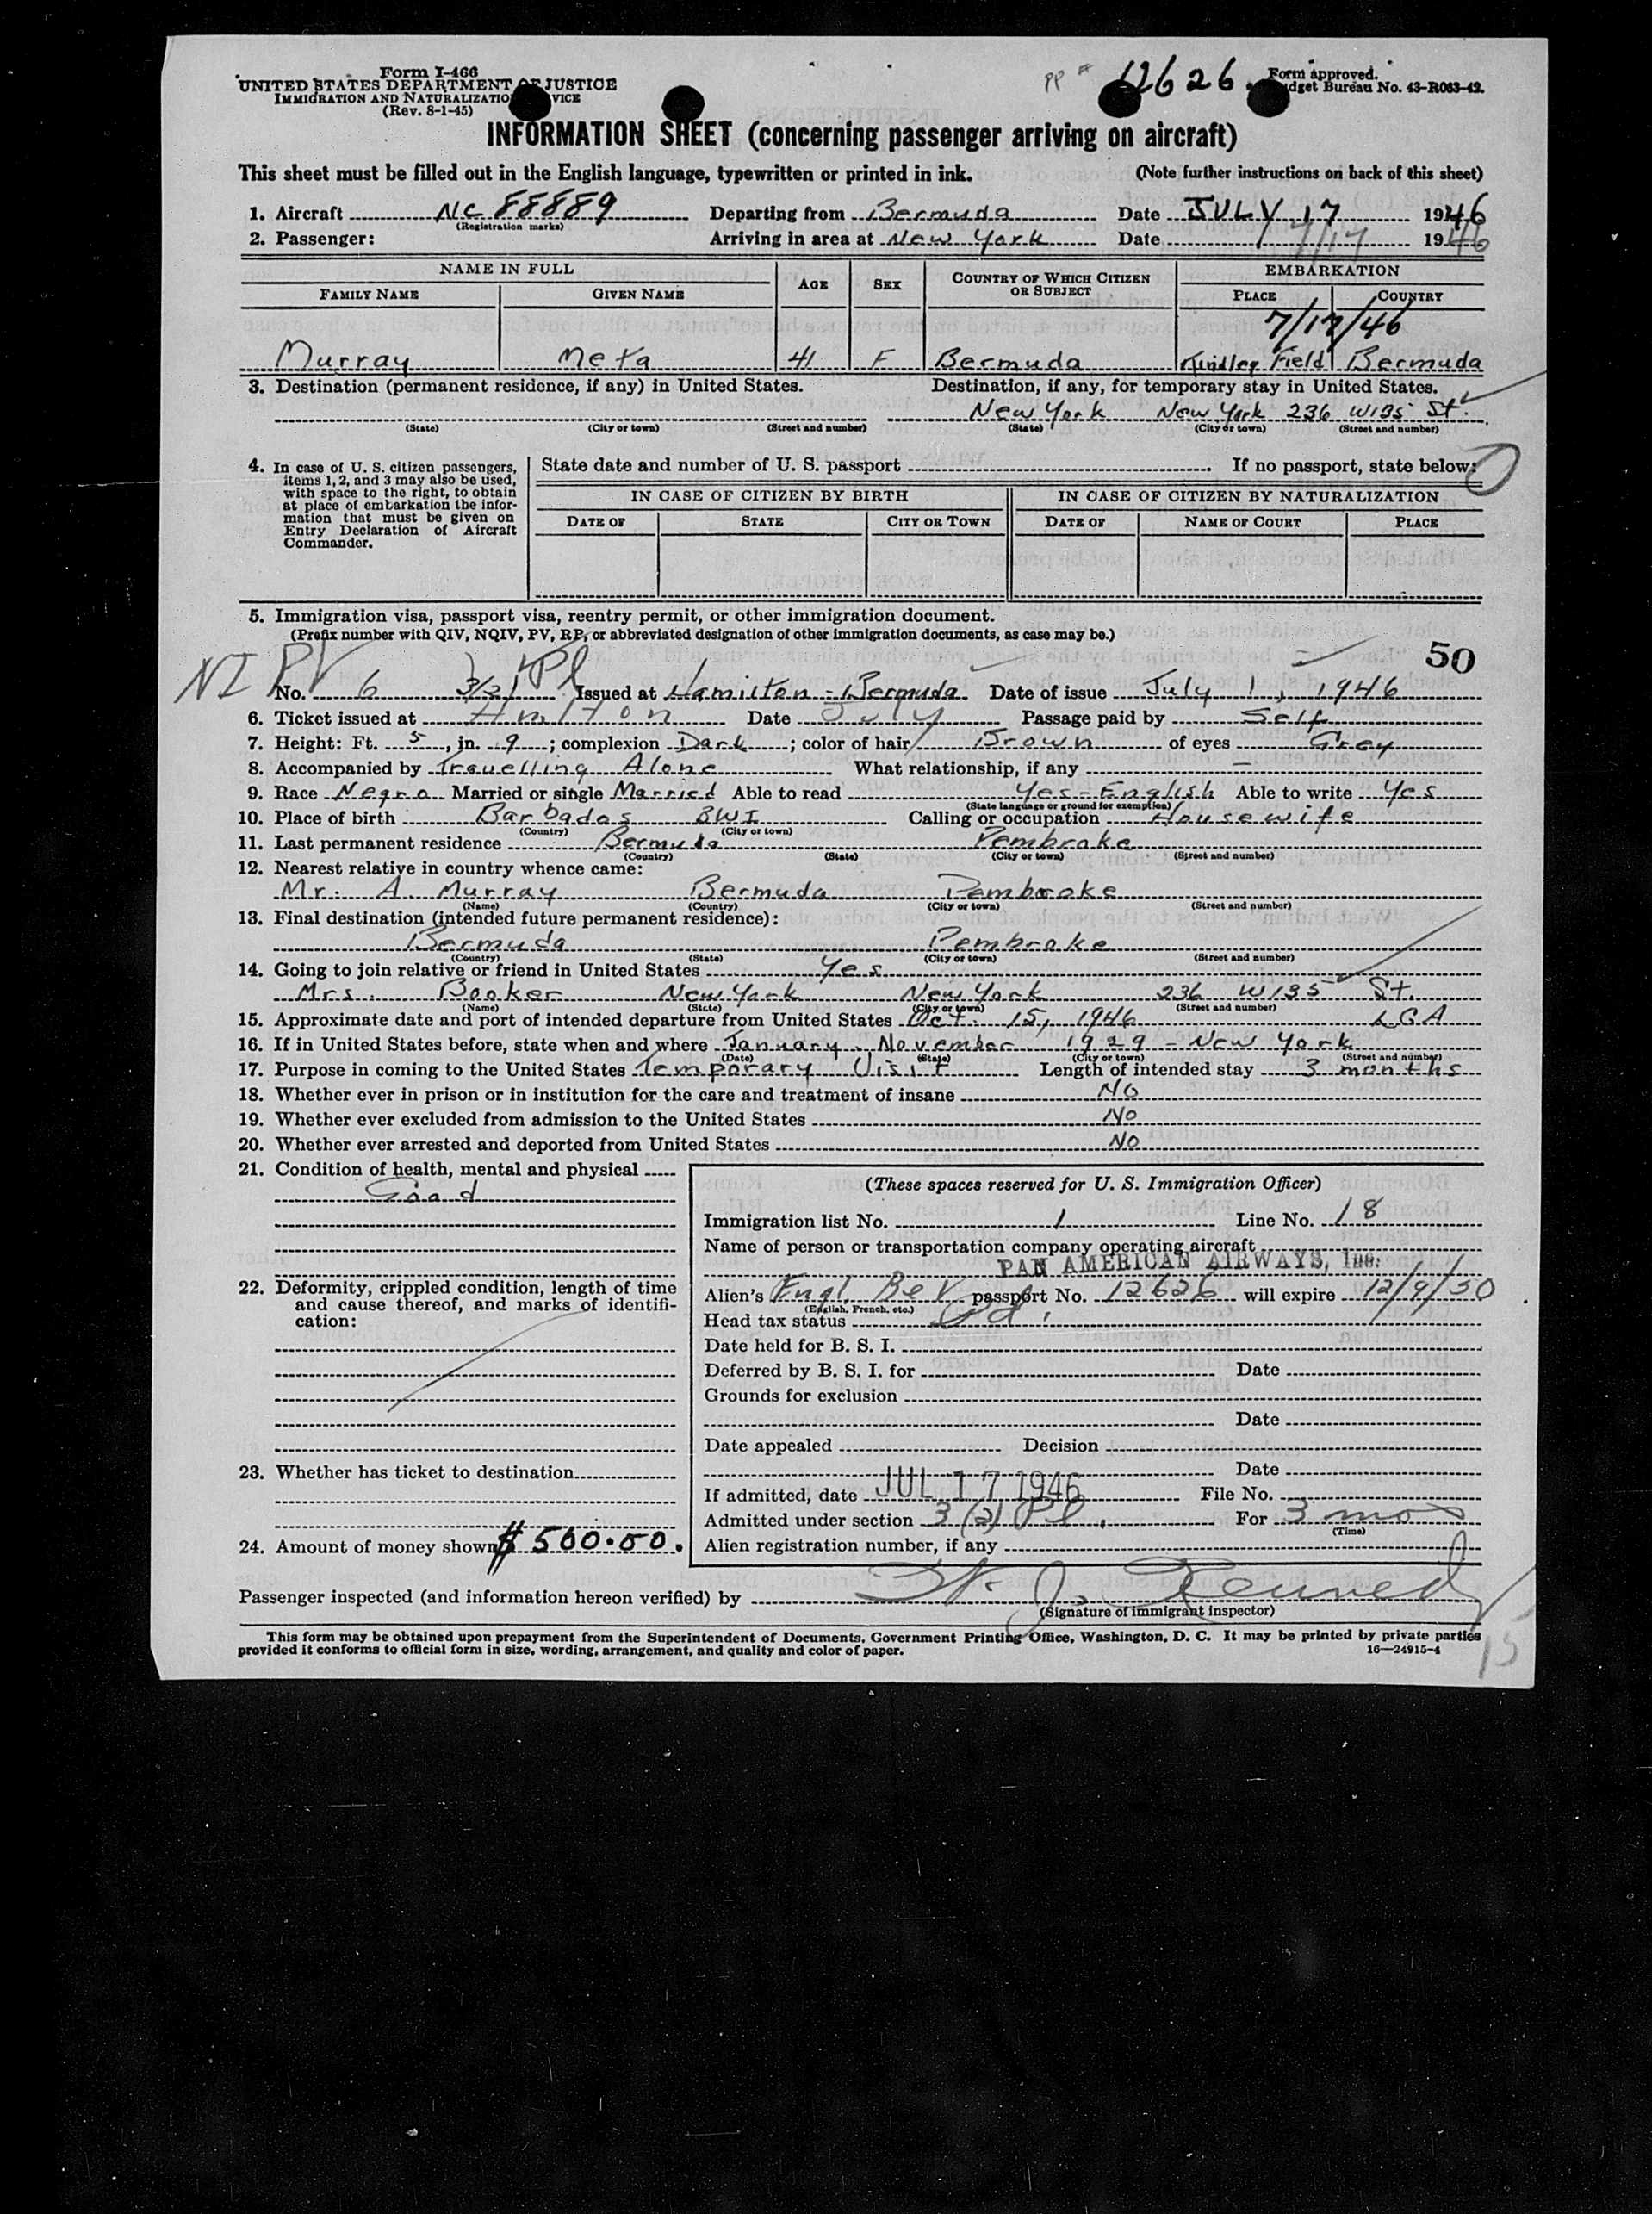 Form I-466
UNITED STATES DEPARTMENT OF JUSTICE
IMMIGRATION AND NATURALIZATIO VICE
(Rev. 8-1-45)
PP # 12626.
Form approved.
dget Bureau No. 43-R063-42.
INFORMATION SHEET (concerning passenger arriving on aircraft)
This sheet must be filled out in the English language, typewritten or printed in ink. (Note further instructions on back of this sheet)
1. Aircraft NC 88889 Departing from Bermuda Date JULY 17 1946
(Registration marks)
2. Passenger: Arriving in area at New York Date 7/17 1946
NAME IN FULL AGE SEX COUNTRY OF WHICH CITIZEN OR SUBJECT EMBARKATION
FAMILY NAME GIVEN NAME PLACE COUNTRY
7/17/46
Murray Meta 41 F Bermuda Kindley Field Bermuda
3. Destination (permanent residence, if any) in United States. Destination, if any, for temporary stay in United States.
New York New York 236 W135 St.
(State) (City or town) (Street and number) (State) (City or town) (Street and number)
4. In case of U. S. citizen passengers, items 1, 2, and 3 may also be used, with space to the right, to obtain at place of embarkation the information that must be given on Entry Declaration of Aircraft Commander.
State date and number of U. S. passport If no passport, state below:
IN CASE OF CITIZEN BY BIRTH IN CASE OF CITIZEN BY NATURALIZATION
DATE OF STATE CITY OR TOWN DATE OF NAME OF COURT PLACE
5. Immigration visa, passport visa, reentry permit, or other immigration document.
(Prefix number with QIV, NQIV, PV, RP, or abbreviated designation of other immigration documents, as case may be.)
50
NI PV No. 6 3(2) Pl Issued at Hamilton - Bermuda Date of issue July 1, 1946
6. Ticket issued at Hmlton Date July Passage paid by Self
7. Height: Ft. 5, in. 9; complexion Dark; color of hair Brown of eyes Grey
8. Accompanied by Travelling Alone What relationship, if any —
9. Race Negro Married or single Married Able to read Yes - English Able to write Yes
(State language or ground for exemption)
10. Place of birth Barbados BWI Calling or occupation Housewife
(Country) (City or town)
11. Last permanent residence Bermuda Pembroke
(Country) (State) (City or town) (Street and number)
12. Nearest relative in country whence came:
Mr. A. Murray Bermuda Pembroke
(Name) (Country) (City or town) (Street and number)
13. Final destination (intended future permanent residence):
Bermuda Pembroke
(Country) (State) (City or town) (Street and number)
14. Going to join relative or friend in United States Yes
Mrs. Booker New York New York 236 W135 St.
(Name) (State) (City or town) (Street and number)
15. Approximate date and port of intended departure from United States Oct. 15, 1946 LGA
16. If in United States before, state when and where January. November 1929 - New York
(Date) (State) (City or town) (Street and number)
17. Purpose in coming to the United States Temporary Visit Length of intended stay 3 months
18. Whether ever in prison or in institution for the care and treatment of insane NO
19. Whether ever excluded from admission to the United States NO
20. Whether ever arrested and deported from United States NO
21. Condition of health, mental and physical
Good
22. Deformity, crippled condition, length of time and cause thereof, and marks of identification:
23. Whether has ticket to destination
24. Amount of money shown $500.00.
(These spaces reserved for U. S. Immigration Officer)
Immigration list No. 1 Line No. 18
Name of person or transportation company operating aircraft
PAN AMERICAN AIRWAYS, Inc.
Alien's Engl. Be V passport No. 12626 will expire 12/9/50.
(English, French, etc.)
Head tax status Pd.
Date held for B. S. I.
Deferred by B. S. I. for Date
Grounds for exclusion
Date
Date appealed Decision
Date
If admitted, date JUL 17 1946 File No.
Admitted under section 3(2) Pl. For 3 mos
(Time)
Alien registration number, if any
Passenger inspected (and information hereon verified) by J. Kennedy
(Signature of immigrant inspector)
This form may be obtained upon prepayment from the Superintendent of Documents, Government Printing Office, Washington, D. C. It may be printed by private parties
provided it conforms to official form in size, wording, arrangement, and quality and color of paper. 16—24915-4
15